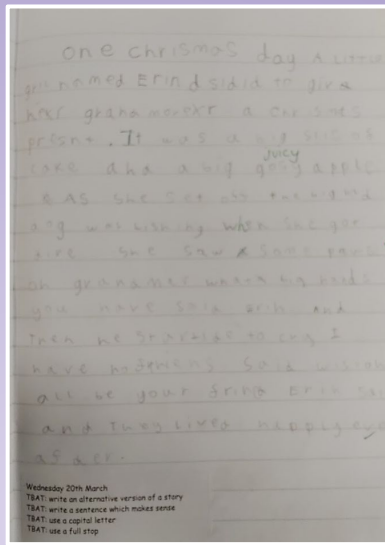 one chrismas day A Little
girl named Erin dsidid to give
her grandmother a chrismes
prisnt. It was a big slice of
cake and a big juicy apple
AS she set off the big bad
was when she got
she saw some
on what big
you have said erin and
then he started to cry I
have no friens said
all be your frind Erin
and they lived happily
after.
Wednesday 20th March
TBAT: write an alternative version of a story
TBAT: write a sentence which makes sense
TBAT: use a capital letter
TBAT: use a full stop